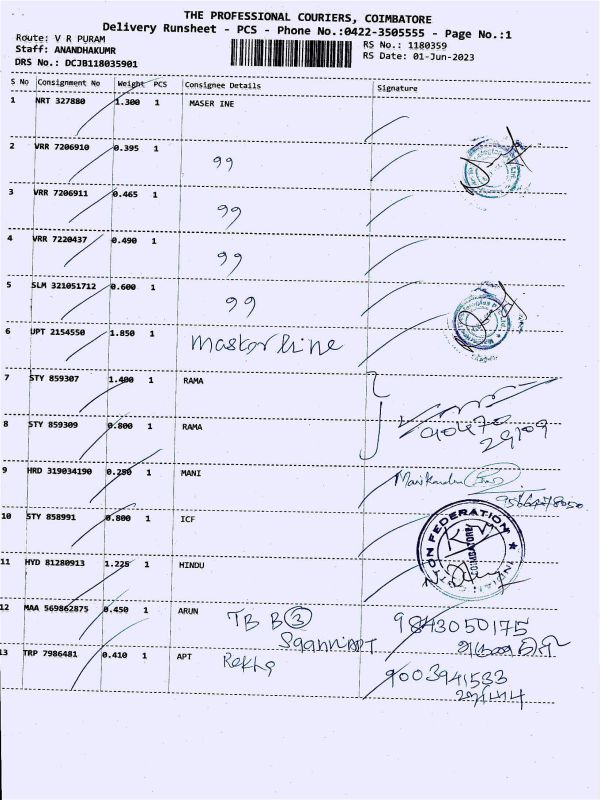 THE PROFESSIONAL COURIERS, COIMBATORE
Delivery Runsheet - PCS - Phone No.:0422-3505555 - Page No.:1
Route: V R PURAM
Staff: ANANDHAKUMR
DRS No.: DCJB118035901
RS No.: 1180359
RS Date: 01-Jun-2023
S No Consignment No Weight PCS Consignee Details Signature
1 NRT 327880 1.300 1 MASER INE
2 VRR 7206910 0.395 1 99
3 VRR 7206911 0.465 1 99
4 VRR 7220437 0.490 1 99
5 SLM 321051712 0.600 1 99
6 UPT 2154550 1.850 1 Mastor line
7 STY 859307 1.400 1 RAMA
8 STY 859309 0.800 1 RAMA
9 HRD 319034190 0.250 1 MANI
10 STY 858991 0.800 1 ICF
COTTON FEDERATION
COIMBATORE
11 HYD 81280913 1.225 1 HINDU
12 MAA 569862875 0.450 1 ARUN TB B 3 9843050175
13 TRP 7986481 0.410 1 APT Rekha 9003941533